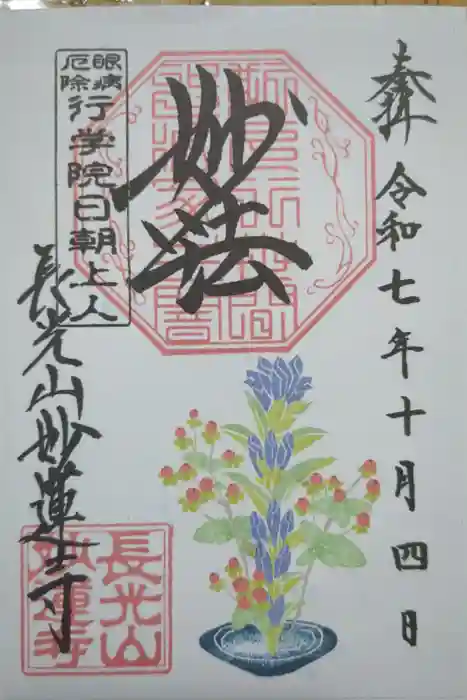 奉拝
令和七年十月四日
妙法
眼病
厄除
行学院日朝上人
長光山妙蓮寺
長光山
妙蓮寺